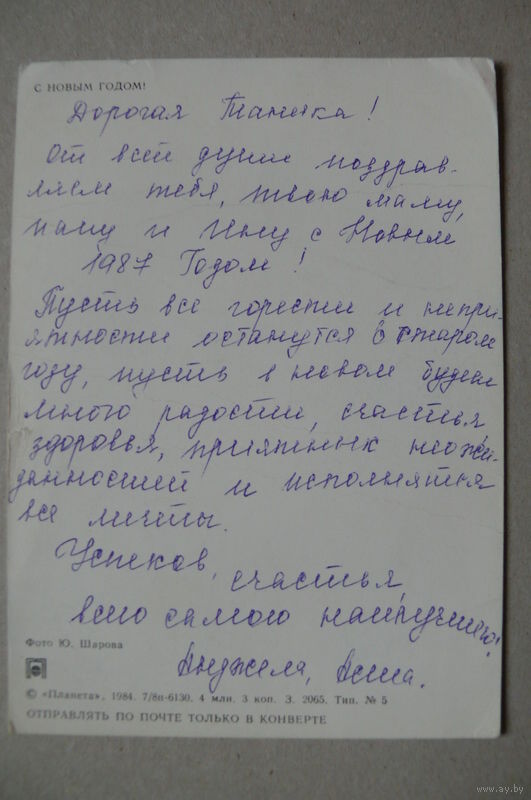 С НОВЫМ ГОДОМ!
Дорогая Танечка!
От всей души поздрав-
ляем тебя, твою маму,
папу и Инну с Новым
1987 Годом!
Пусть все горести и непри-
ятности останутся в старом
году, пусть в новом будет
много радости, счастья
здоровья, приятных неожи-
данностей и исполнятся
все мечты.
Успехов, счастья
всего самого наилучшего!
Анджела,
Фото Ю. Шарова
© «Планета», 1984. 7/8п-6130. 4 млн. 3 коп. З. 2065. Тип. № 5
ОТПРАВЛЯТЬ ПО ПОЧТЕ ТОЛЬКО В КОНВЕРТЕ
www.ay.by